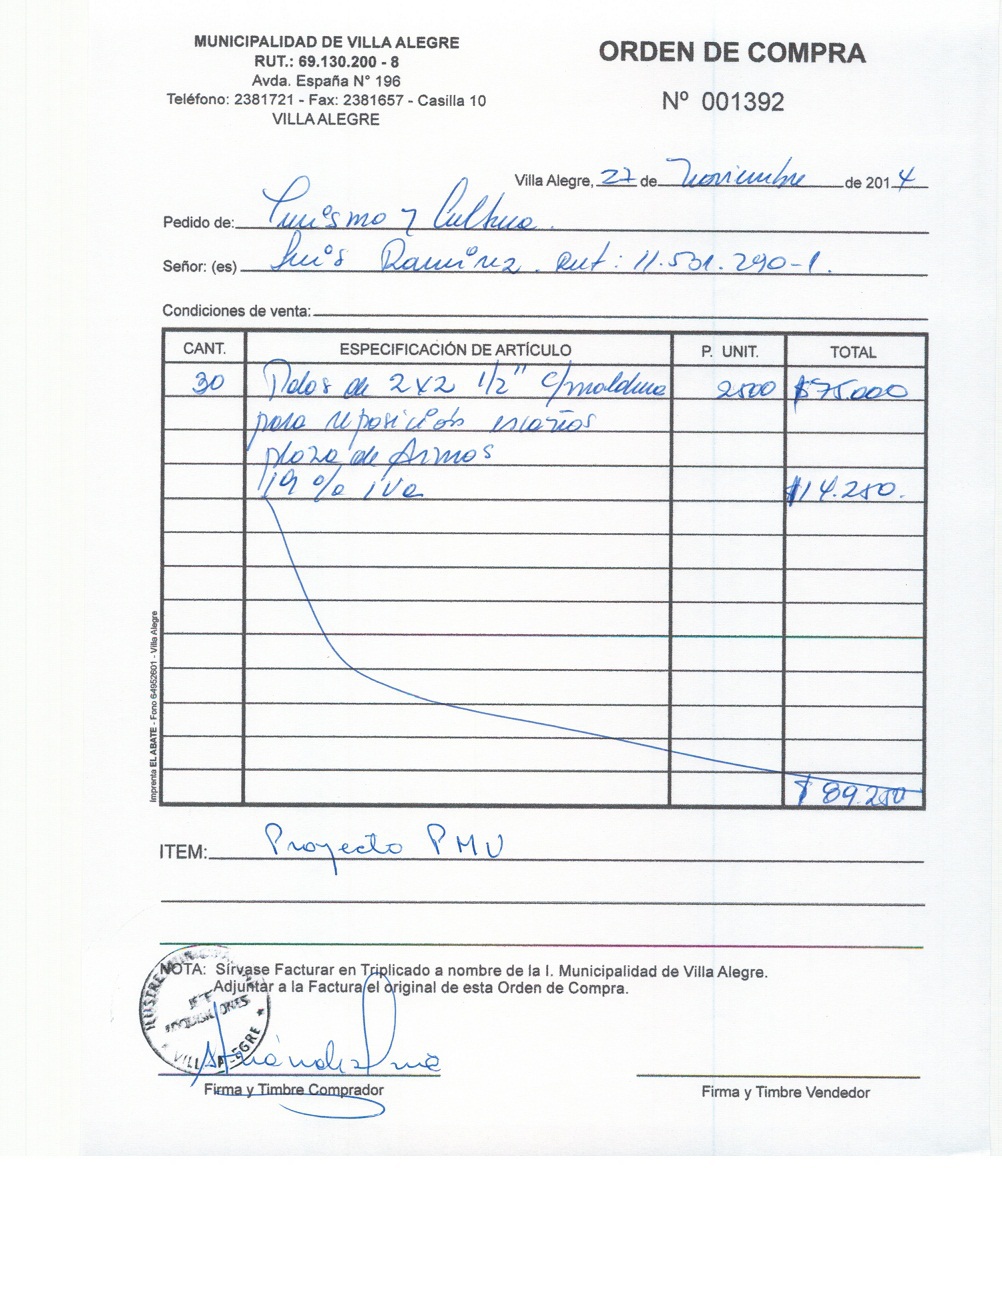 MUNICIPALIDAD DE VILLA ALEGRE
RUT.: 69.130.200 - 8
Avda. España N° 196
Teléfono: 2381721 - Fax: 2381657 - Casilla 10
VILLA ALEGRE
ORDEN DE COMPRA
Nº 001392
Villa Alegre, 27 de Noviembre de 2014
Pedido de: Turismo y Cultura.
Señor: (es) Luis Ramirez. Rut: 11.531.290-1.
Condiciones de venta:
CANT. ESPECIFICACIÓN DE ARTÍCULO P. UNIT. TOTAL
30 Palos de 2x2 1/2" c/moldura 2500 $75.000
para reposición escaños
plaza de Armas
19 % iva $14.250.
$ 89.250
Imprenta EL ABATE - Fono 64952601 - Villa Alegre
ITEM: Proyecto PMU
NOTA: Sírvase Facturar en Triplicado a nombre de la I. Municipalidad de Villa Alegre.
Adjuntar a la Factura el original de esta Orden de Compra.
ILUSTRE
JEFE
ADQUISICIONES
VILLA ALEGRE
Firma y Timbre Comprador
Firma y Timbre Vendedor